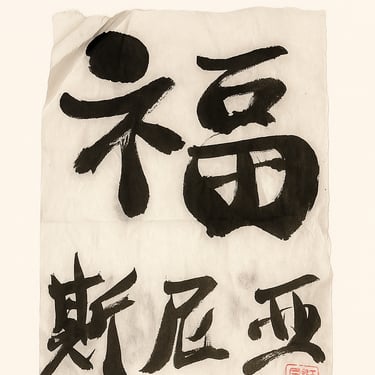 福
斯尼亚